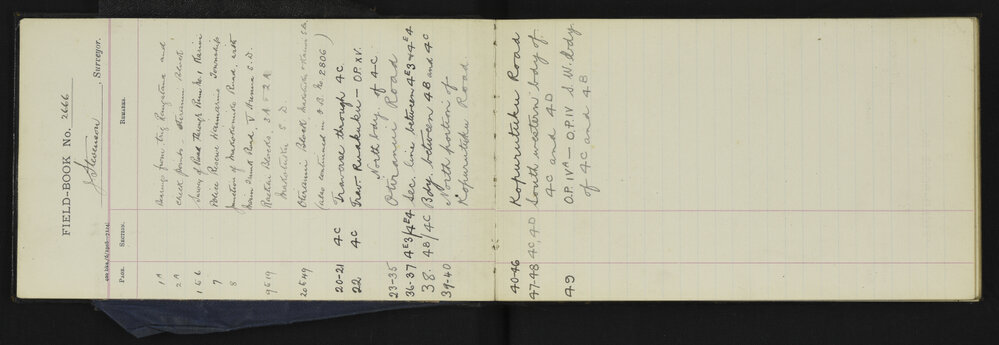 FIELD-BOOK No. 2666
J Stevenson, Surveyor.
PAGE. SECTION. REMARKS.
1A Bearings from trig Rangitane and
2A check points, Otiranui Block
1 to 6 Survey of Road through Run No. 1
7 Police Reserve Township
8 Junction of Makokomiko Road, with
Main Road, V S.D.
9 to 19 Raetihi Blocks, 3A & 2A
Makotuku S.D.
20 to 49 Otiranui Block Makotuku S.Ds.
(also continued in F.B. No. 2806)
20-21 4C Traverse through 4C
22 4C Trav. Ruakuku - O.P. XV.
North bdy of 4C
23-35 Otiranui Road
36-37 4E3/4E4 Sec. line between 4E3 & 4E4
38. 4B/4C Bdy. between 4B and 4C
39-40 North portion of
Kopurutuku Road
40-46 Kopurutuku Road
47-48 4C, 4D South western bdy of
4C and 4D
49 O.P. IVA - O.P. IV S.W. bdy
of 4C and 4B